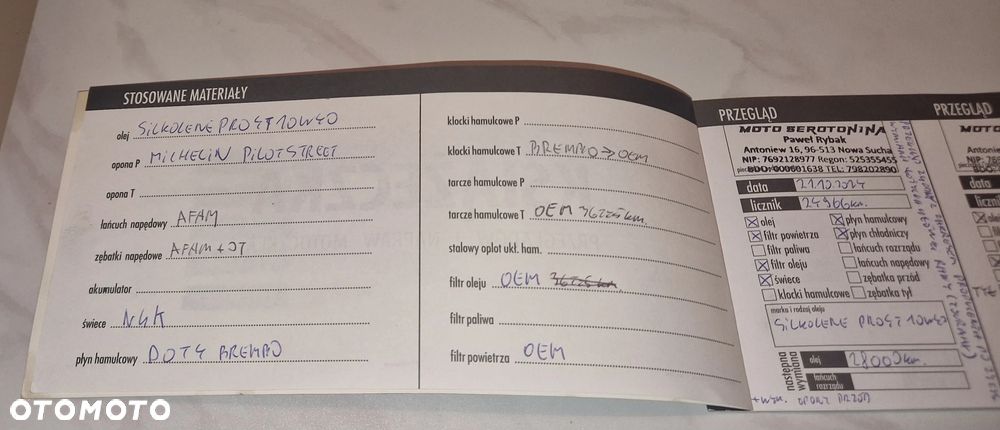 STOSOWANE MATERIAŁY
olej SILKOLENE PRO 4T 10W40
opona P MICHELIN PILOT STREET
opona T
łańcuch napędowy AFAM
zębatki napędowe AFAM + JT
akumulator
świece NGK
płyn hamulcowy DOT4 BREMBO
klocki hamulcowe P
klocki hamulcowe T BREMBO → OEM
tarcze hamulcowe P
tarcze hamulcowe T OEM km.
stalowy oplot ukł. ham.
filtr oleju OEM
filtr paliwa
filtr powietrza OEM
PRZEGLĄD
MOTO SEROTONINA
Paweł Rybak
Antoniew 16, 96-513 Nowa Sucha
NIP: 7692128977 Regon: 525355455
BDO: 000601638 TEL: 798202890
data 21.10.2024
licznik 24966km.
olej
płyn hamulcowy
filtr powietrza
płyn chłodniczy
filtr paliwa
łańcuch rozrządu
filtr oleju
łańcuch napędowy
świece
zębatka przód
klocki hamulcowe
zębatka tył
marka i rodzaj oleju
SILKOLENE PRO 4T 10W40
następna wymiana
olej 28000km.
łańcuch rozrządu
+ WYM. OPONY PRZÓD
PRZEGLĄD
MOTO
Antonie
NIP:
data
licznik
OTOMOTO